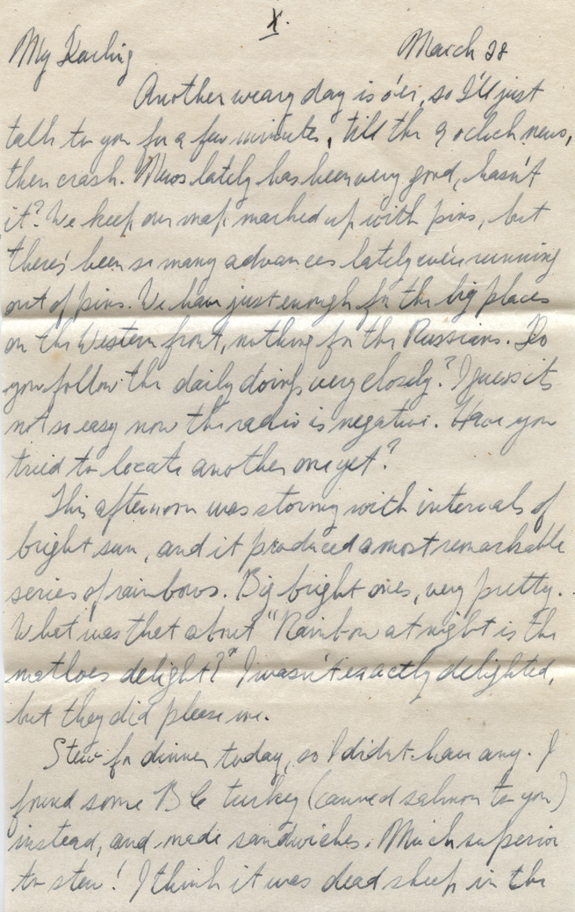 X.
My Darling March 28
Another weary day is o'er, so I'll just
talk to you for a few minutes, till the 9 oclock news,
then crash. News lately has been very good, hasn't
it? We keep our map marked up with pins, but
there's been so many advances lately we're running
out of pins. We have just enough for the big places
on the Western front, nothing for the Russians. Do
you follow the daily doings very closely? I guess its
not so easy now the radio is negative. Have you
tried to locate another one yet?
This afternoon was stormy with intervals of
bright sun, and it produced a most remarkable
series of rainbows. Big bright ones, very pretty.
What was that about "Rainbow at night is the
matloes delight?" I wasn't exactly delighted,
but they did please me.
Stew for dinner today, so I didn't have any. I
found some B C turkey (canned salmon to you)
instead, and made sandwiches. Much superior
to stew! I think it was dead sheep in the